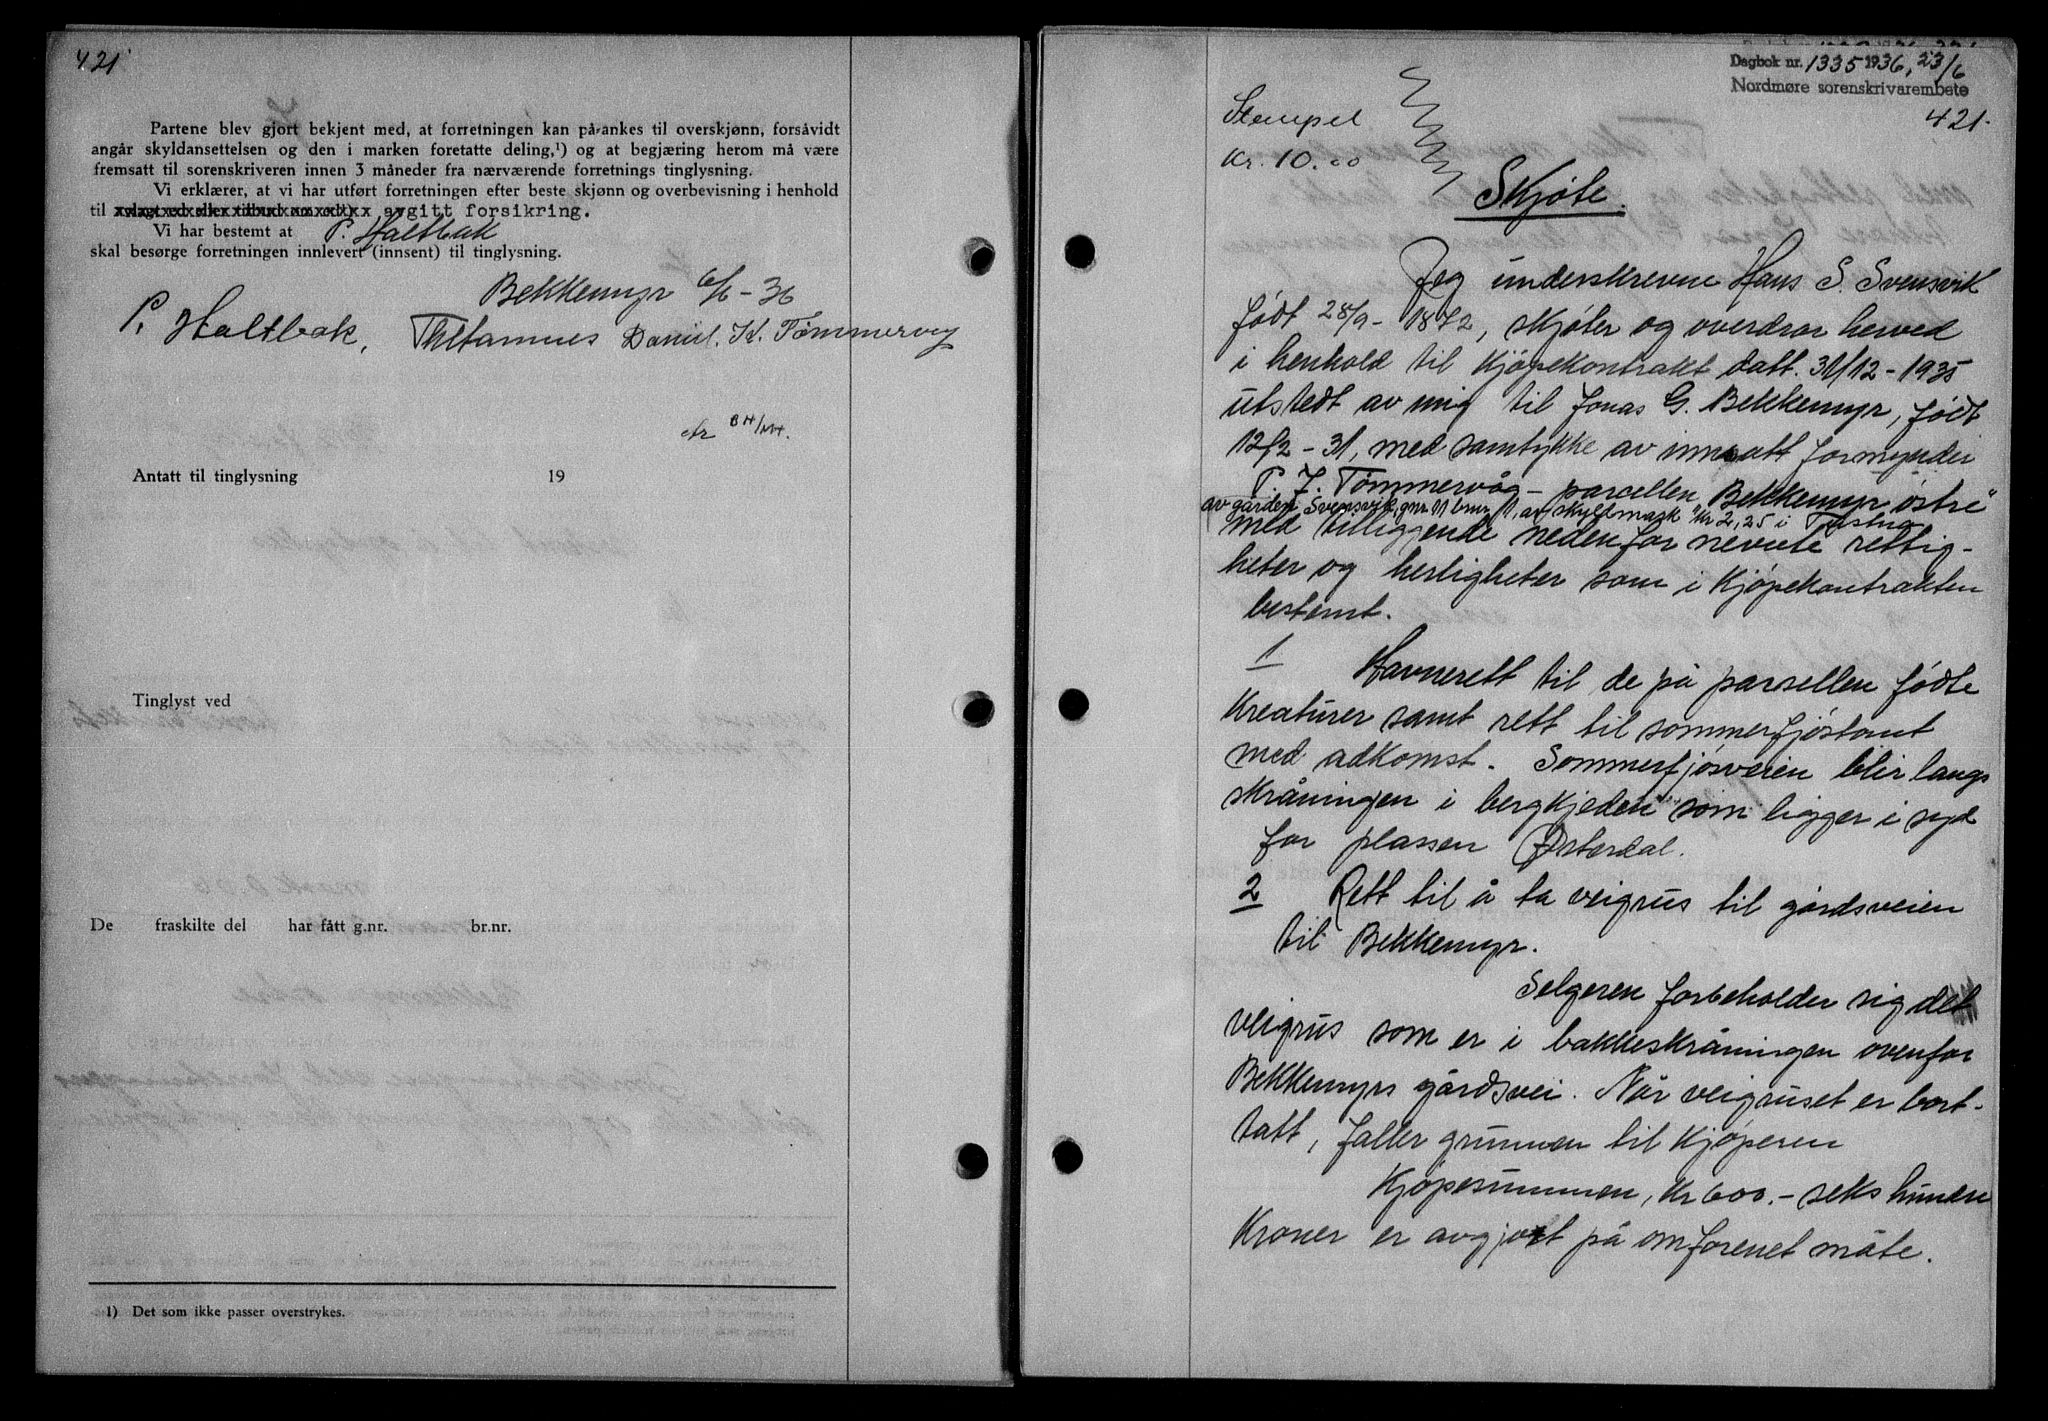 421
Partene blev gjort bekjent med, at forretningen kan på-ankes til overskjønn, forsåvidt
angår skyldansettelsen og den i marken foretatte deling,¹) og at begjæring herom må være
fremsatt til sorenskriveren innen 3 måneder fra nærværende forretnings tinglysning.
Vi erklærer, at vi har utført forretningen efter beste skjønn og overbevisning i henhold
til avgitt forsikring.
Vi har bestemt at P. Haltbak
skal besørge forretningen innlevert (innsent) til tinglysning.
Bekkemyr 6/6 - 36
P. Haltbak, Daniel. K. Tømmervåg
Antatt til tinglysning 19
Tinglyst ved
De fraskilte del har fått g.nr. br.nr.
1) Det som ikke passer overstrykes.
Dagbok nr. 1335 1936, 23/6
Nordmøre sorenskrivarembete
421.
Stempel
Kr. 10.00
Skjøte.
Jeg underskrevne Hans S. Svensvik
født 28/9 - 1872, skjøter og overdrar herved
i henhold til Kjøpekontrakt datt. 31/12 - 1935
utstedt av mig til Jonas G. Bekkemyr, født
12/2 - 31, med samtykke av innsatt formynder
P. J. Tømmervåg - parcellen "Bekkemyr østre"
av gården Svensvik, gnr. 11 bnr. 1, av skyldmark Kr 2,25 i Tustna
med tilliggende nedenfor nevnte rettig-
heter og herligheter som i Kjøpekontrakten
bestemt.
1 Havnerett til de på parsellen fødte
Kreaturer samt rett til sommerfjøstomt
med adkomst. Sommerfjøsveien blir langs
skråningen i bergkjeden som ligger i syd
for plassen Østerdal.
2 Rett til å ta veigrus til gårdsveien
til Bekkemyr.
Selgeren forbeholder sig det
veigrus som er i bakkeskråningen ovenfor
Bekkemyrs gårdsvei. Når veigruset er bort-
tatt, faller grunnen til Kjøperen
Kjøpesummen, Kr 600.- seks hundre
Kroner er avgjort på omforenet måte.